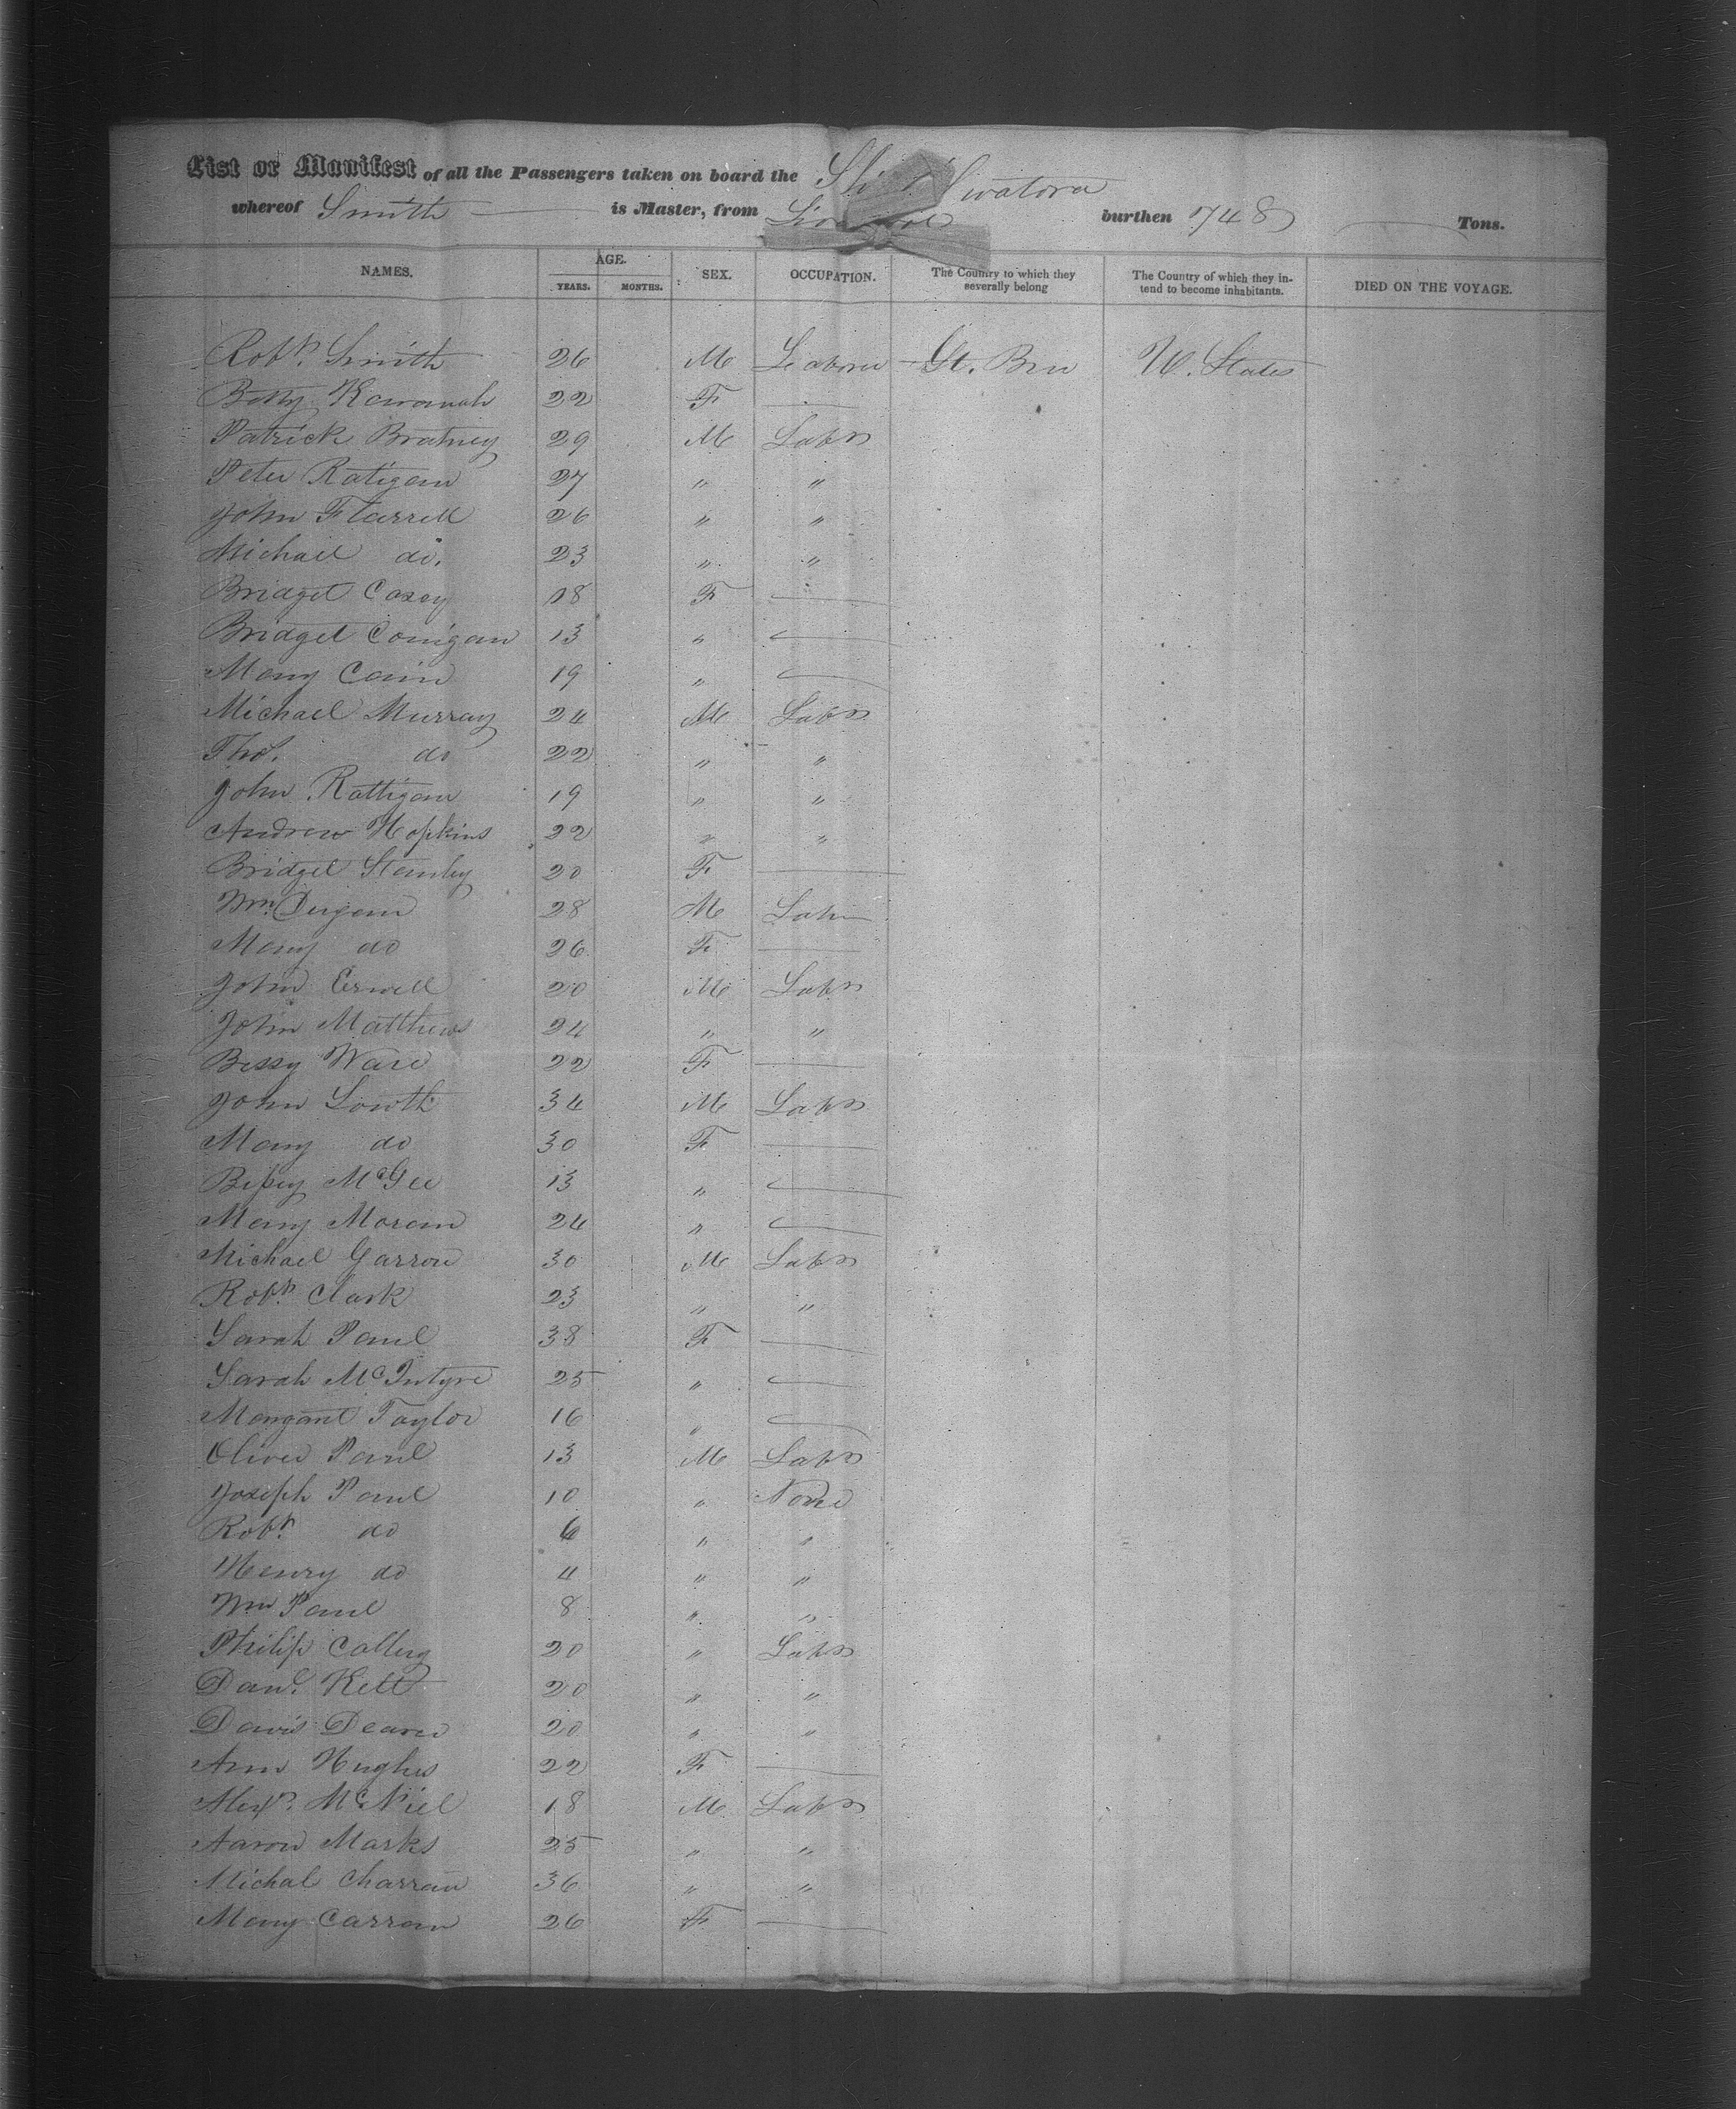 List or Manifest of all the Passengers taken on board the Sh
whereof Smith is Master, from burthen 748 Tons.
NAMES. AGE. YEARS. MONTHS. SEX. OCCUPATION. The Country to which they severally belong The Country of which they intend to become inhabitants. DIED ON THE VOYAGE.
Robt. Smith 26 M Labour Gt. Brn U. States
Betty Kavanah 22 F —
Patrick Bratney 29 M Labr
Peter Ratigan 27 " "
John Flarrell 26 " "
Michael do. 23 " "
Bridget Casey 18 F —
Bridget Corrigan 13 " —
Mary Cain 19 " —
Michael Murray 24 M Labr
Thos. do 22 " "
John Rattigan 19 " "
Andrew Hopkins 22 " "
Bridget Stanley 20 F —
Wm. Dugan 28 M Labr
Mary do 26 F —
John Erwell 20 M Labr
John Matthews 24 " "
Bessy Ware 22 F —
John Lowth 34 M Labr
Mary do 30 F —
Bessy McGee 13 " —
Mary Moran 24 " —
Michael Garron 30 M Labr
Robt. Clark 23 " "
Sarah Paul 38 F —
Sarah McIntyre 25 " —
Margaret Taylor 16 " —
Oliver Paul 13 M Labr
Joseph Paul 10 " None
Robt. do 6 " "
Henry do 4 " "
Wm Paul 8 " "
Philip Collery 20 " Labr
Danl. Kett 20 " "
Davis 20 " "
Ann Hughes 22 F —
Alexr. McNiel 18 M Labr
Aaron Marks 25 " "
Michal Charran 36 " "
Mary Carran 26 F —